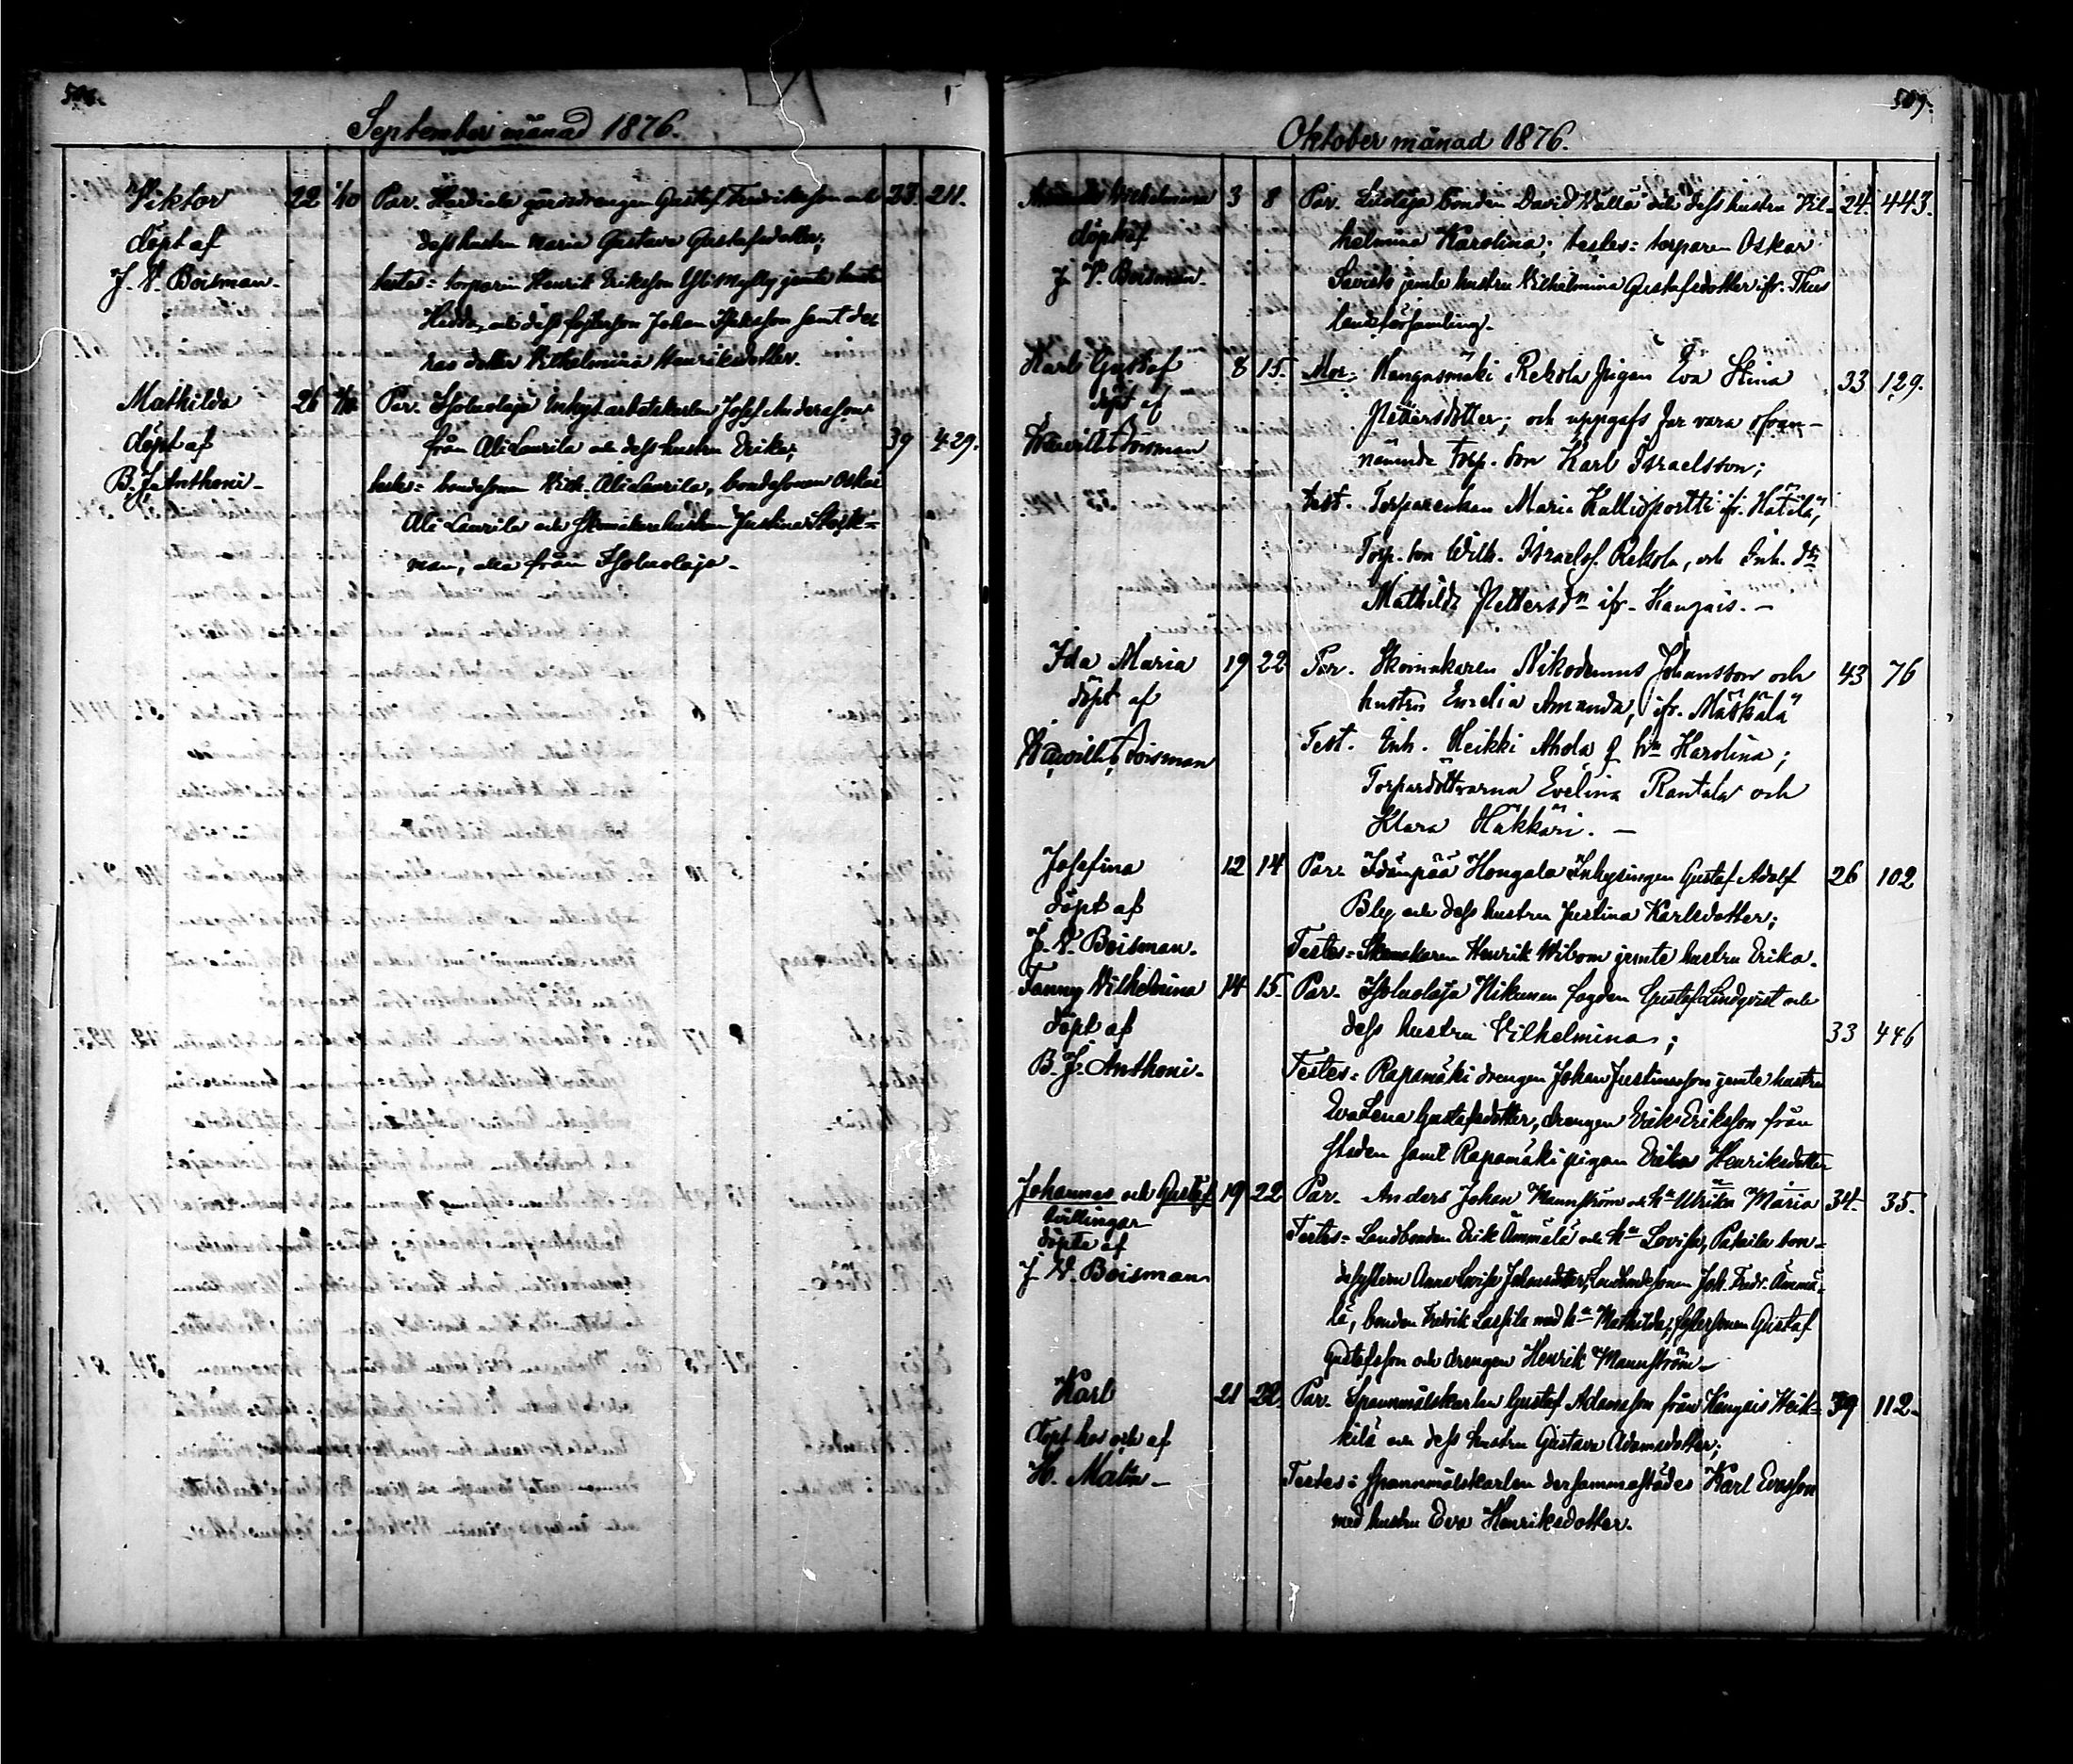 September månad 1876.
Viktor 22 1/10 Par. gårdsdrengen Gustaf Fredriksson och 23. 211.
döpt af dess hustru Maria Gustava Gustafsdotter;
J. V. Boisman. testes = torparen Henrik Eriksson Yli Mylly jemte hustru
Hedda, och dess son Johan samt de=
ras dotter Vilhelmina Henriksdotter.
Mathilda 26 Par. Isoluolaja Inhys arbetskarlen Josef Andersson
döpt af från Ali Laurila och dess hustru Erika; 39 429.
B. J. Anthoni - testes = bondesonen Vich. Ali Laurila, bondesonen Oskar
Ali Laurila och skomakarehustrun Justina
man, alla från Isoluolaja -
509.
Oktober månad 1876.
Vilhelmina 3 8 Par. bonden David och dess hustru Vil= 24. 443.
döpt af helmina Karolina; testes = torparen Oskar
J. V. Boisman. Savisto jemte hustru Vilhelmina Gustafsdotter ifr.
landsförsamling.
Karl Gustaf 8 15. Mor. Kangasmäki Rekola pigan Eva Stina 33 129.
döpt af Pettersdotter; och uppgafs far vara ofvan-
Boisman nämnde Torp. son Karl Israelsson;
test. Torparenkan Maria Kallioportti ifr. Hätilä,
Torp. son Wilh. Israelss. Rekola, och Inh. dtr
Mathilda Pettersdr ifr. Kangais. -
Ida Maria 19 22 Par. Skomakaren Nikodemus Johansson och 43 76
döpt af hustru Emelia Amanda, ifr. Mäskälä
Boisman Test. Inh. Heikki Ahola & hn Karolina;
Torpardöttrarna Evelina Rantala och
Klara Häkkäri. -
Josefina 12 14 Par. Idänpää Hongala Inhysingen Gustaf Adolf 26 102
döpt af Bly och dess hustru Justina Karlsdotter;
J. V. Boisman. Testes = Skomakaren Henrik Wibom jemte hustru Erika.
Fanny Vilhelmina 14 15. Par. Isoluolaja Hikunen fogden Gustaf Lindqvist och
döpt af dess hustru Vilhelmina; 33 446
B. J. Anthoni. Testes = Rapamäki drengen Johan Justinusson jemte hustru
Eva Lena Gustafsdotter, drengen Erik Eriksson från
staden samt Rapamäki pigan Erika Henriksdotter
Johannes och Gustaf 19 22 Par. Anders Johan Mannström och hn Ulrika Maria 34. 35.
tvillingar Testes = Landbonden Erik Ämmälä och hn Lovisa, Pätnila bon=
döpta af
J. V. Boisman desystern Anna Lovisa Johansdotter, Landbondesonen Joh. Fredr. Ämmä=
lä, bonden Fredrik Lassila med hn Mathilda; Gustaf
Gustafsson och drengen Henrik Mannström -
Karl 21 22. Par. Spannmålskarlen Gustaf Adamsson från Kangais Heik= 39 112.
Döpt hos och af kilä och dess hustru Gustava Adamsdotter;
H. Malin - Testes = Spannmålskarlen dersammastädes Karl Evasson
med hustru Eva Henriksdotter.